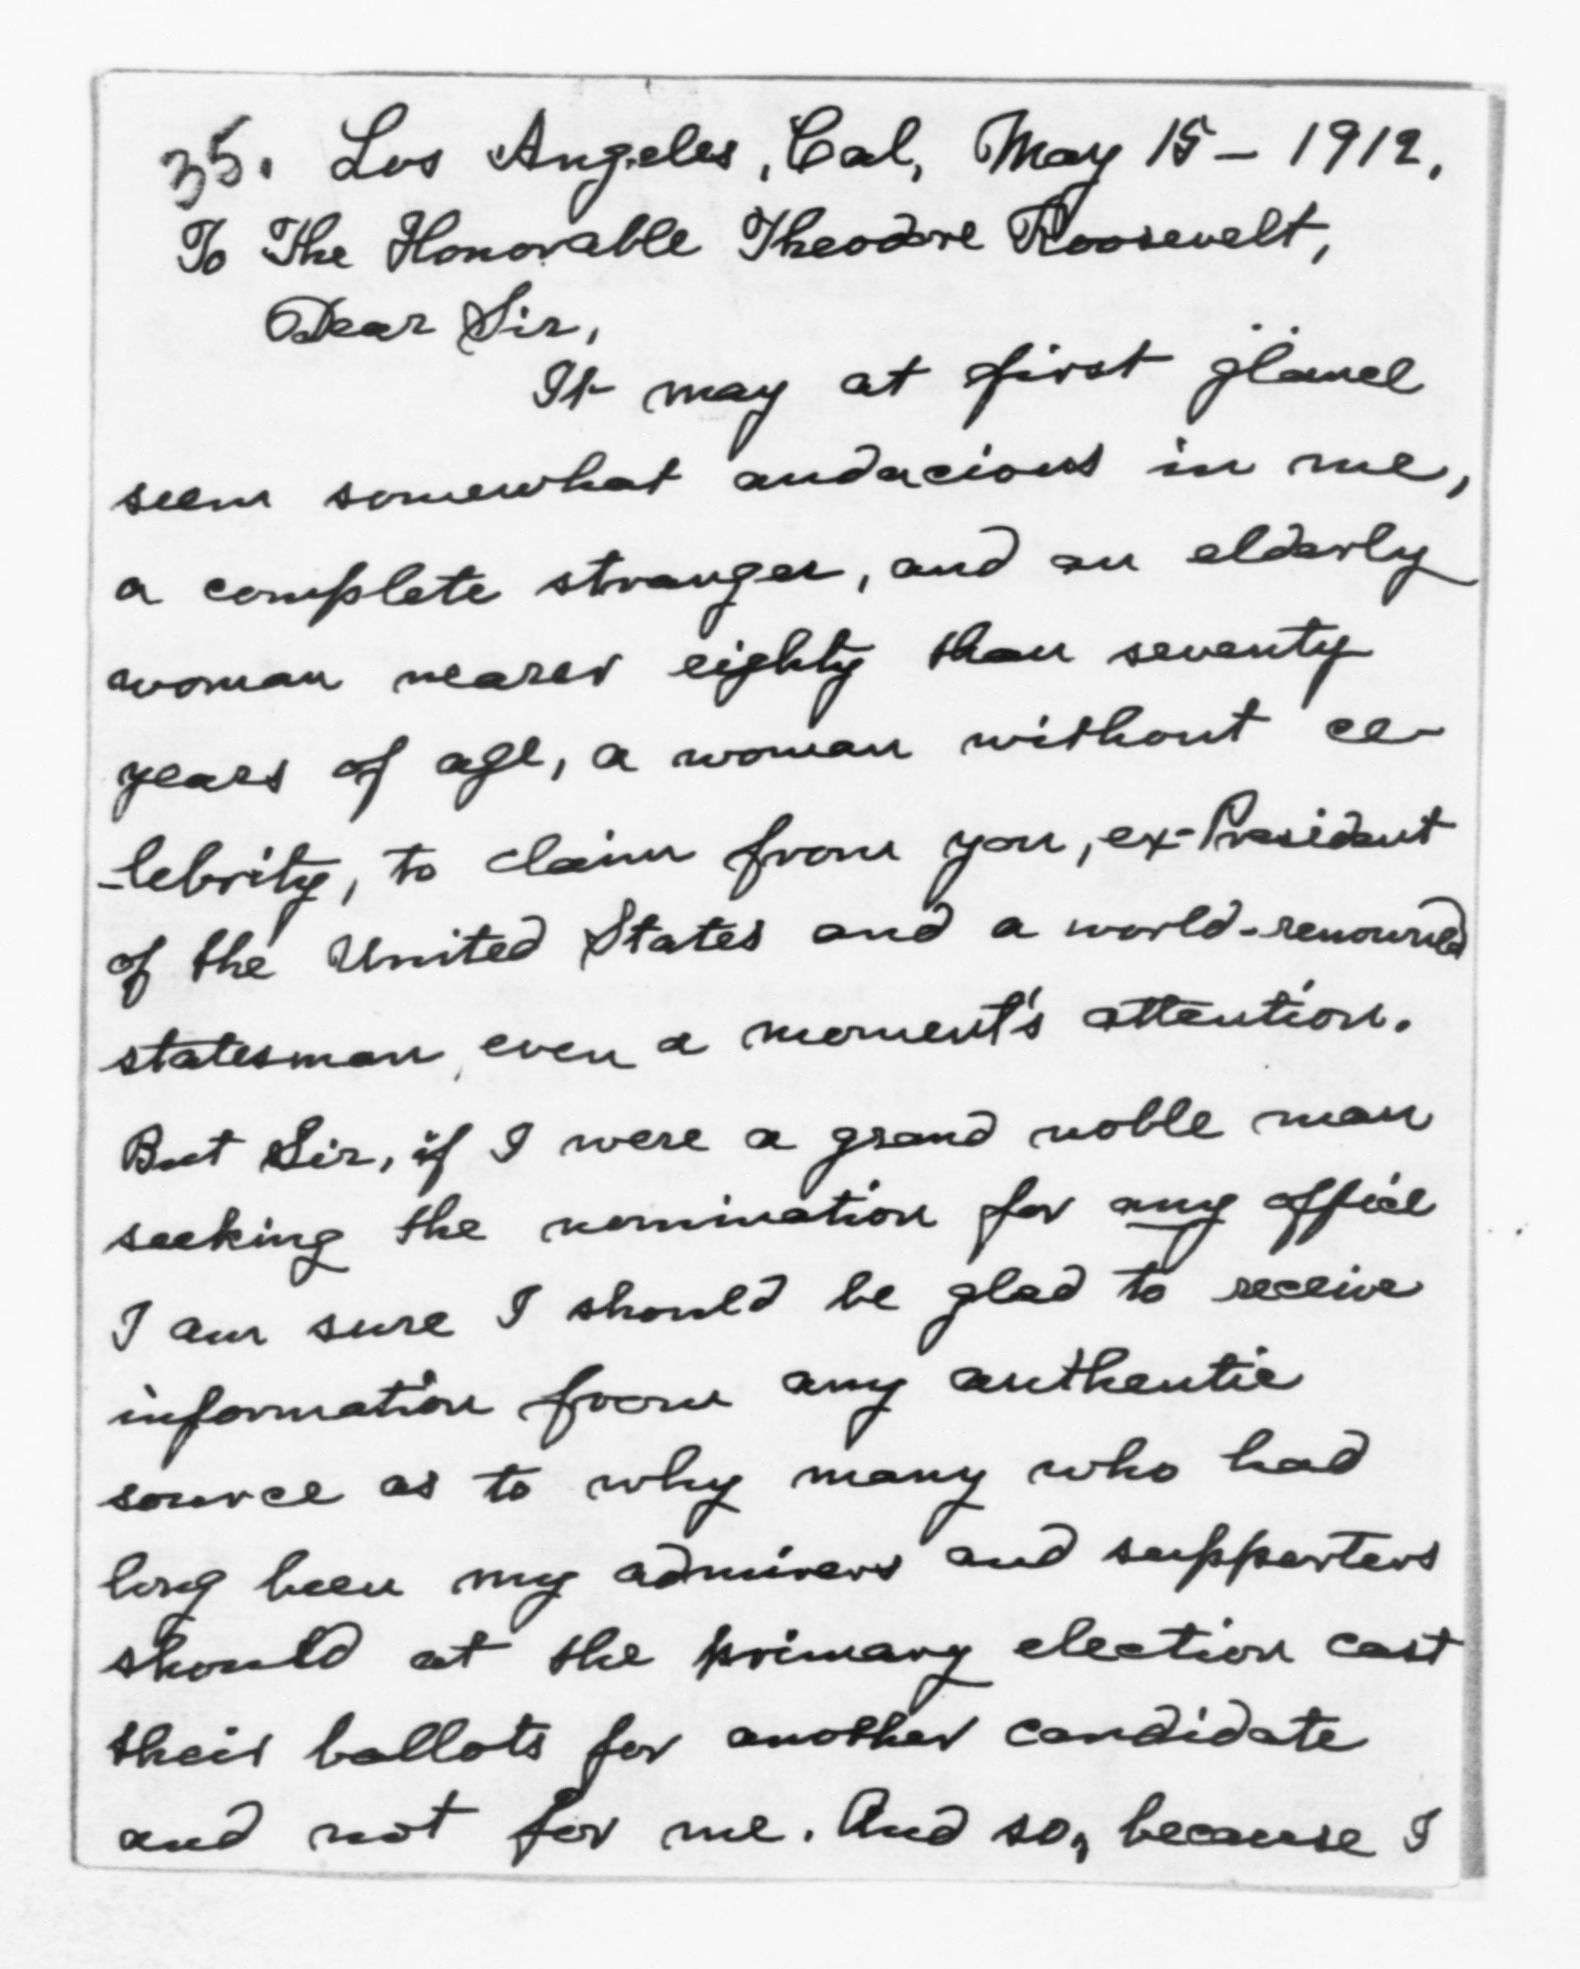 35. Los Angeles, Cal, May 15 – 1912.
To The Honorable Theodore Roosevelt,
Dear Sir,
It may at first glance
seem somewhat audacious in me,
a complete stranger, and an elderly
woman nearer eighty than seventy
years of age, a woman without ce-
-lebrity, to claim from you, ex-President
of the United States and a world-renowned
statesman, even a moment's attention.
But Sir, if I were a grand noble man
seeking the nomination for any office
I am sure I should be glad to receive
information from any authentic
source as to why many who had
long been my admirers and supporters
should at the primary election cast
their ballots for another candidate
and not for me. And so, because I